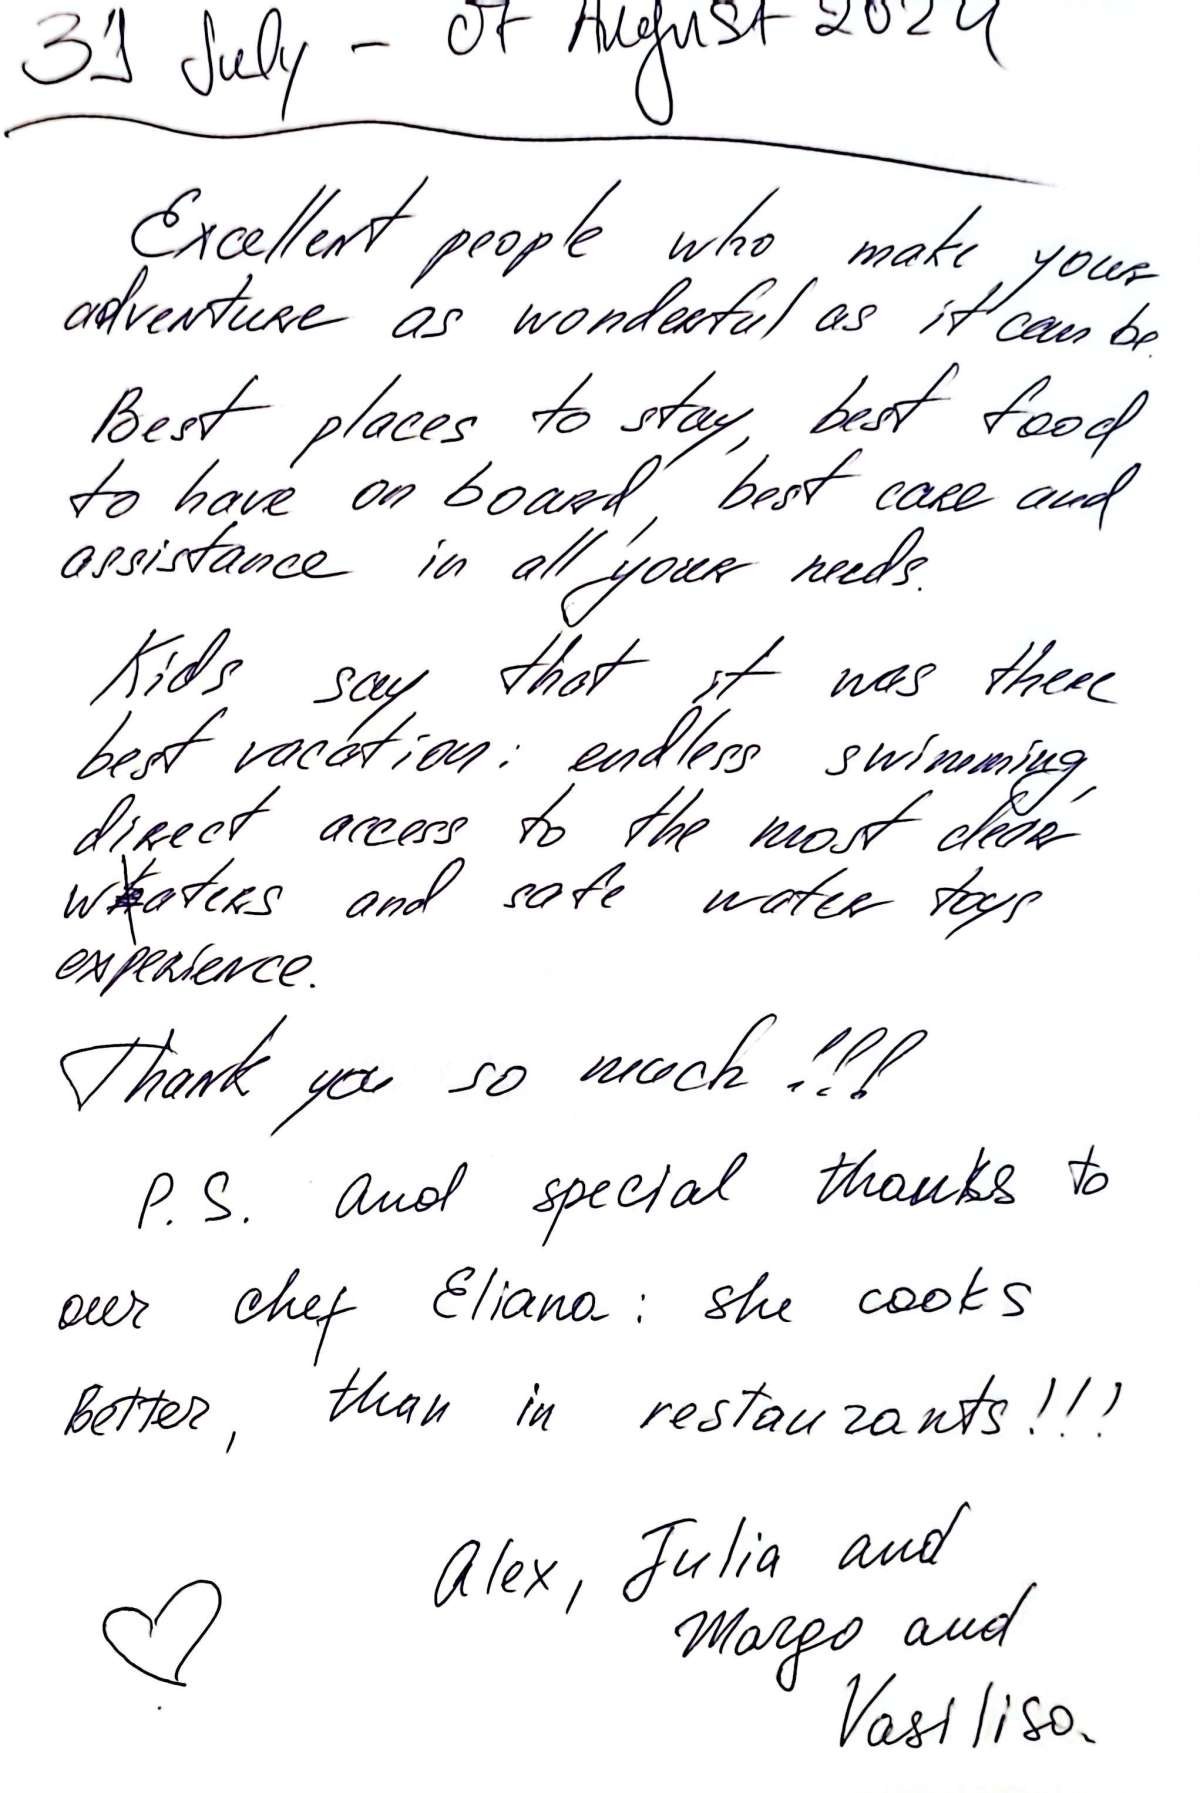 31 July - 07 August 2024
Excellent people who make your
adventure as wonderful as it can be.
Best places to stay, best food
to have on board, best care and
assistance in all your needs.
Kids say that it was there
best vacation: endless swimming,
direct access to the most clear
waters and safe water toys
experience.
Thank you so much!!!
P.S. and special thanks to
our chef Eliana: she cooks
Better, than in restaurants!!!
Alex, Julia and
Margo and
Vasilisa.